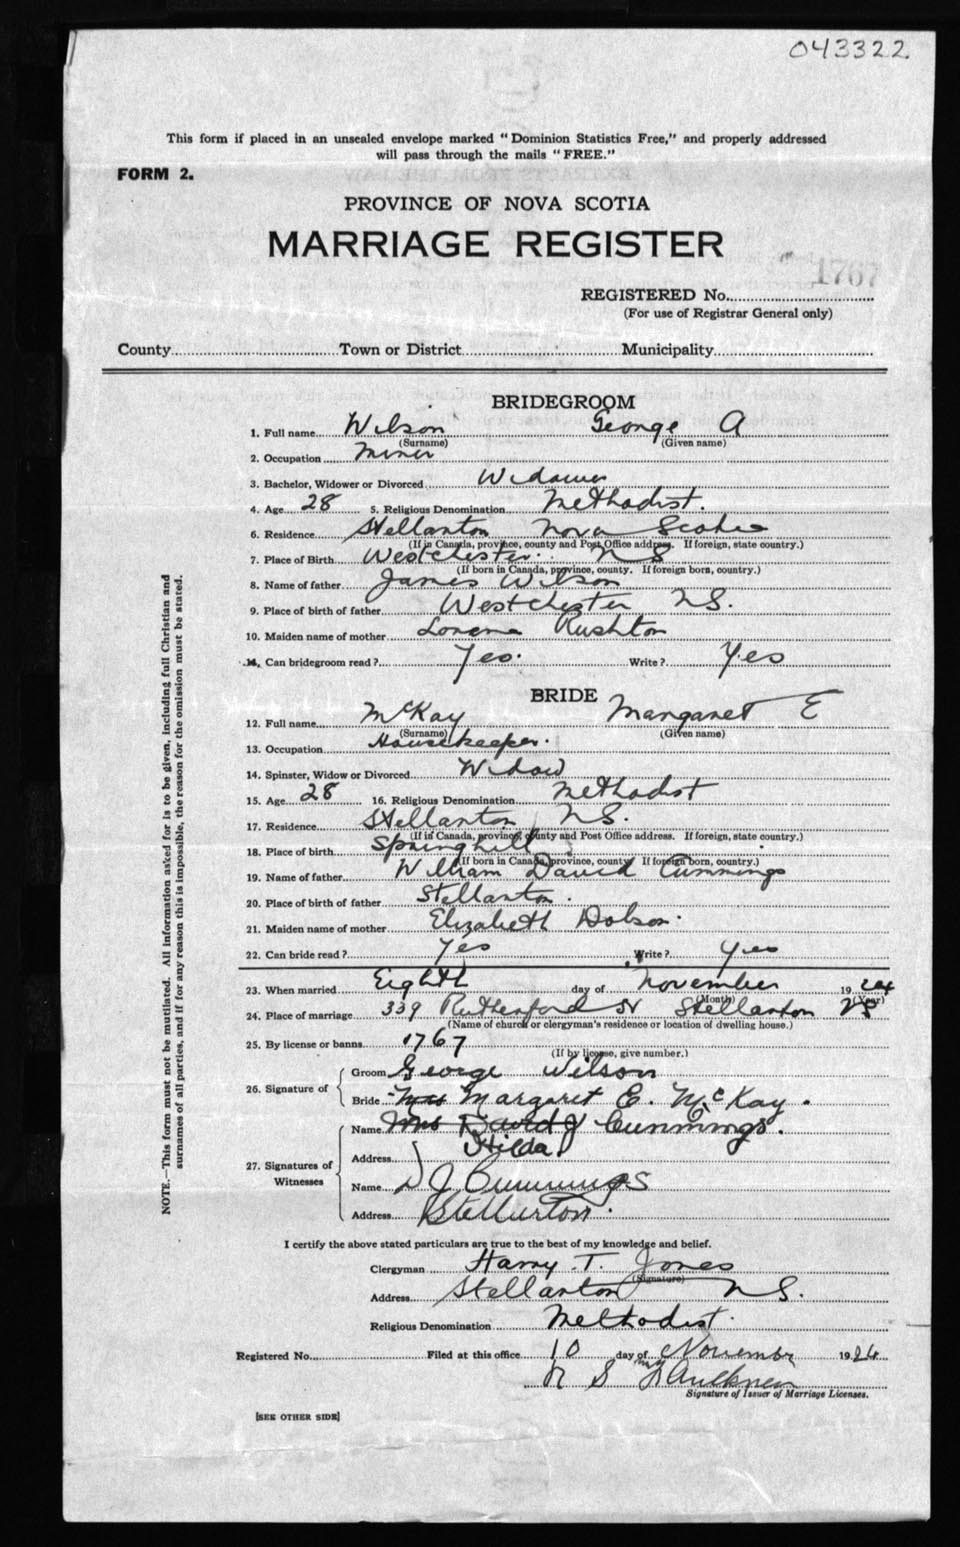 043322
This form if placed in an unsealed envelope marked "Dominion Statistics Free," and properly addressed
will pass through the mails "FREE."
FORM 2.
PROVINCE OF NOVA SCOTIA
MARRIAGE REGISTER
1767
REGISTERED No.
(For use of Registrar General only)
County Town or District Municipality
BRIDEGROOM
1. Full name Wilson George A
(Surname) (Given name)
2. Occupation Miner
3. Bachelor, Widower or Divorced Widower
4. Age 28 5. Religious Denomination Methodist.
6. Residence Stellarton Nova Scotia
(If in Canada, province, county and Post Office address. If foreign, state country.)
7. Place of Birth Westchester. NS
(If born in Canada, province, county. If foreign born, country.)
8. Name of father James Wilson
9. Place of birth of father Westchester NS.
10. Maiden name of mother Lorena Rushton
11. Can bridegroom read? Yes. Write? Yes
BRIDE
12. Full name McKay Margaret E
(Surname) (Given name)
13. Occupation Housekeeper.
14. Spinster, Widow or Divorced Widow
15. Age 28 16. Religious Denomination Methodist
17. Residence Stellarton NS.
(If in Canada, province, county and Post Office address. If foreign, state country.)
18. Place of birth Springhill
(If born in Canada, province, county. If foreign born, country.)
19. Name of father William David Cummings
20. Place of birth of father Stellarton.
21. Maiden name of mother Elizabeth Dobson.
22. Can bride read? Yes Write? Yes
23. When married Eighth day of November 1924
(Month) (Year)
24. Place of marriage 339 Rutherford St Stellarton NS
(Name of church or clergyman's residence or location of dwelling house.)
25. By license or banns 1767
(If by license, give number.)
26. Signature of Groom George Wilson
Bride Mrs Margaret E. McKay.
27. Signatures of Witnesses Name Mrs David J Cummings.
Hilda
Address
Name D J Cummings
Address Stellarton.
I certify the above stated particulars are true to the best of my knowledge and belief.
Clergyman Harry T. Jones
(Signature)
Address Stellarton NS.
Religious Denomination Methodist.
Registered No. Filed at this office 10 day of November 1924
Faulkner
Signature of Issuer of Marriage Licenses.
[SEE OTHER SIDE]
NOTE.—This form must not be mutilated. All information asked for is to be given, including full Christian and
surnames of all parties, and if for any reason this is impossible, the reason for the omission must be stated.